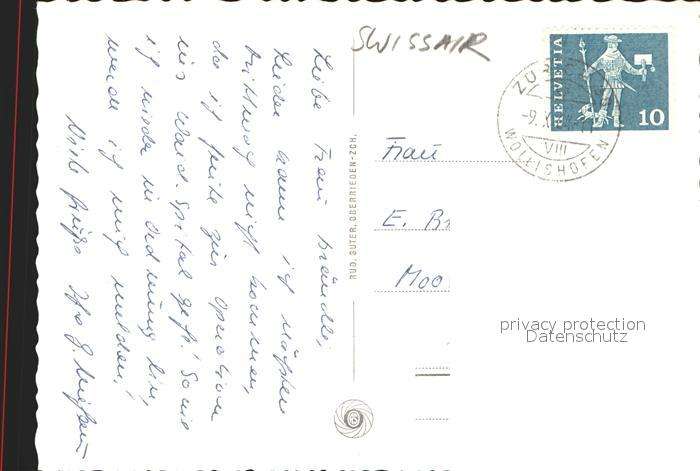 SWISSAIR
Liebe Frau Brändli,
Leider kann ich nächsten
Mittwoch nicht kommen,
da ich heute zur Operation
ins Waid-Spital geh! Sowie
ich wieder in Ordnung bin,
werde ich mich melden!
Viele Grüsse Ihre
RUD. SUTER, OBERRIEDEN-ZCH.
Frau
E. Br
Moo
HELVETIA
10
ZÜ
-9. X
VIII
WOLLISHOFEN
privacy protection
Datenschutz